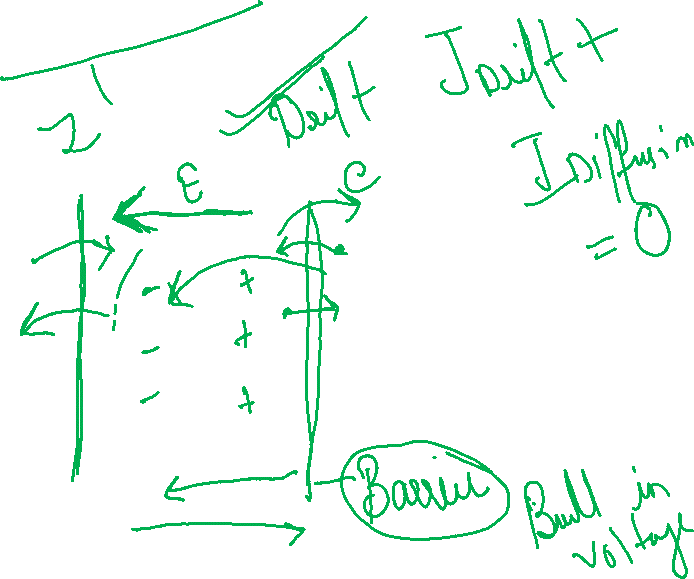 I
Drift
J Drift +
J Diffusion
= 0
E
e
- +
- +
- +
Barrier
Built in
voltage